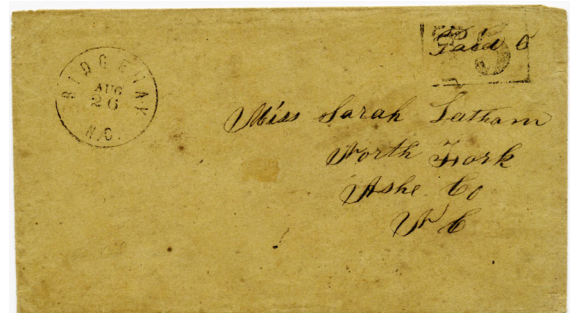 BRIDGEWAY
AUG
26
N.C.
Paid 5
Miss Sarah Latham
North Fork
Ashe Co
N C